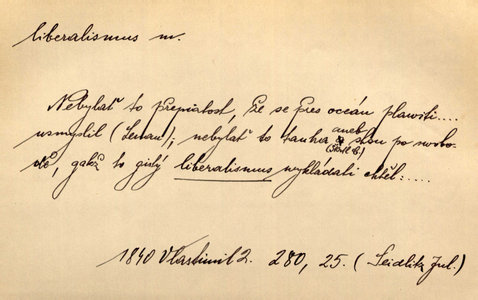 liberalismus m.
Nebylať to přepiatost, že se přes oceán plawiti....
usmyslil (Lenau), nebylať to tauha aneb
po swobo-
dě, gakž to giný liberalismus wykládati chtěl.....
1840 Vlastimil 2. 280, 25. (Seidlitz Jul.)